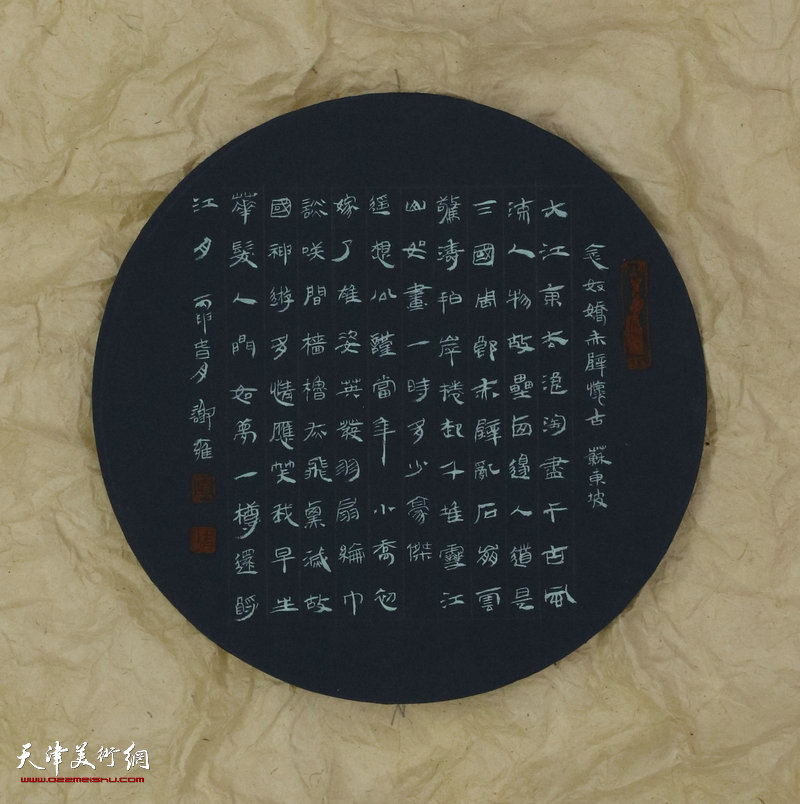 念奴嬌赤壁懷古 蘇東坡
大江東去浪淘盡千古風
流人物故壘西邊人道是
三國周郎赤壁亂石崩雲
驚濤拍岸捲起千堆雪江
山如畫一時多少豪傑
遙想公瑾當年 小喬初
嫁了雄姿英發羽扇綸巾
談咲間檣櫓灰飛煙滅故
國神遊多情應笑我早生
華髮人間如夢一樽還酹
江月 丙申 月 謝雍
天津美術網
www.022meishu.com